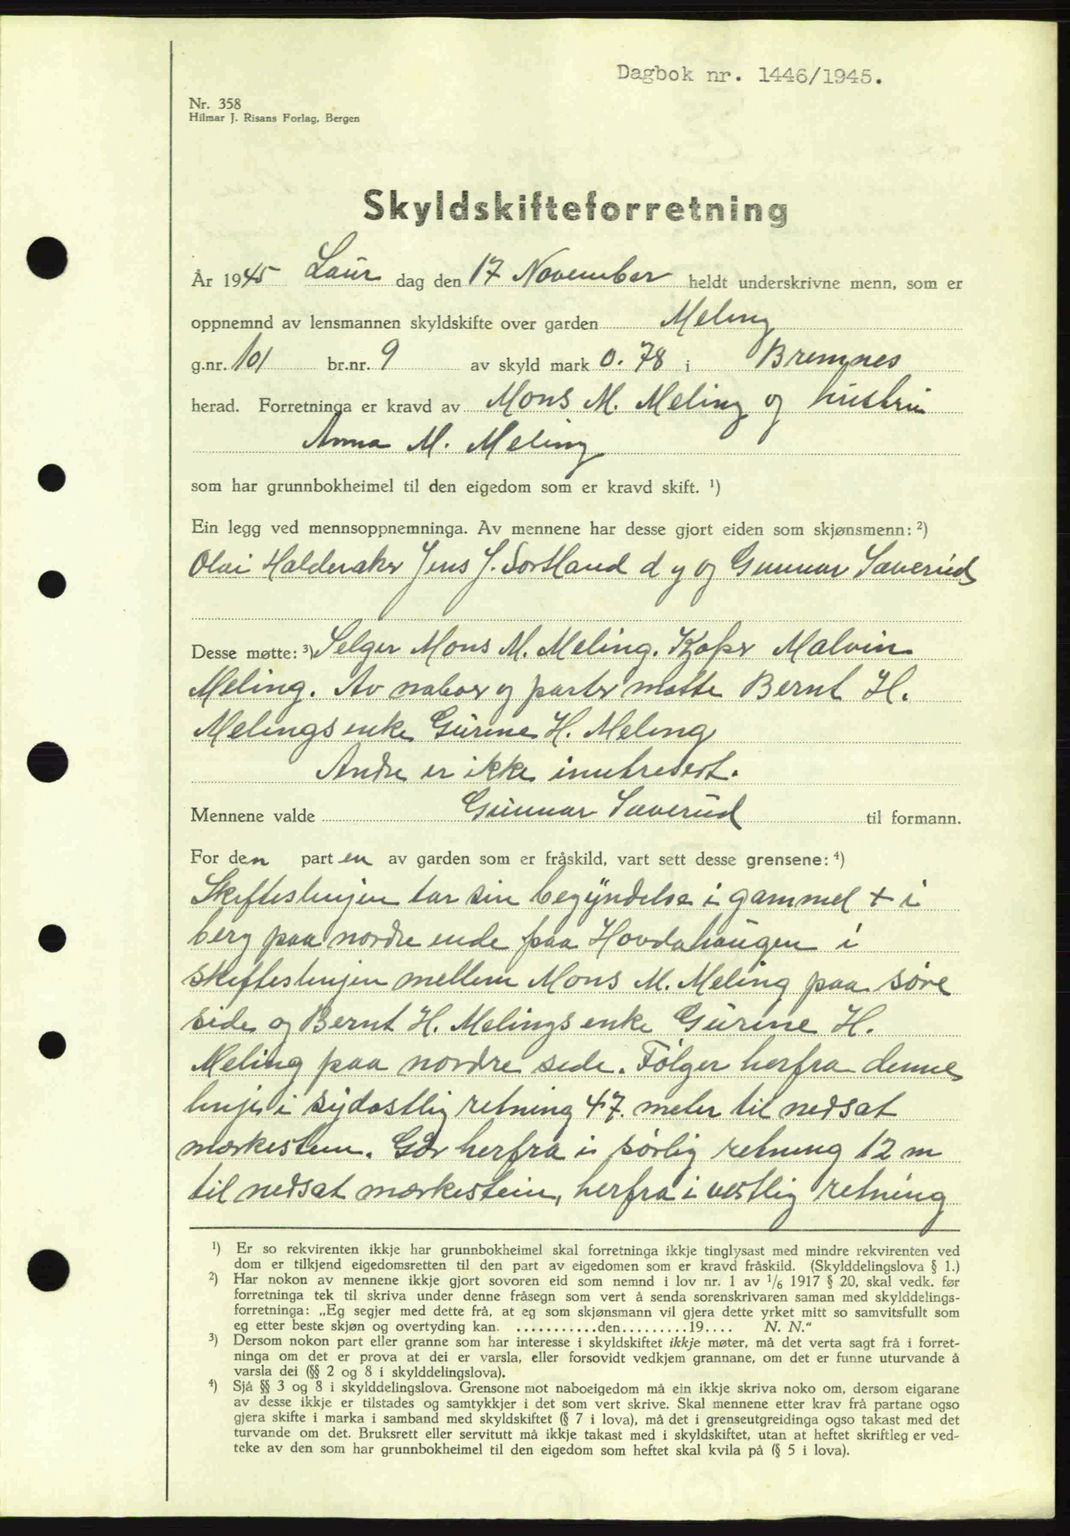 Dagbok nr. 1446/1945.
Nr. 358
Hilmar J. Risans Forlag, Bergen
Skyldskifteforretning
År 1945 Laur dag den 17 November heldt underskrivne menn, som er
oppnemnd av lensmannen skyldskifte over garden Meling
g.nr. 101 br.nr. 9 av skyld mark 0.78 i Bremnes
herad. Forretninga er kravd av Mons M. Meling og hustru
Anna M. Meling
som har grunnbokheimel til den eigedom som er kravd skift. ¹)
Ein legg ved mennsoppnemninga. Av mennene har desse gjort eiden som skjønsmenn: ²)
Olai Halderaker Jens J. Sortland d y og Gunnar Saverud
Desse møtte: ³) Selger Mons M. Meling. Kjøper Malvin
Meling. Av naboer og parter møtte Bernt H.
Melings enke Gurine H. Meling
Andre er ikke inntresert.
Mennene valde Gunnar Saverud til formann.
For den parten av garden som er fråskild, vart sett desse grensene: ⁴)
Skifteslinjen tar sin begyndelse i gammel + i
berg paa nordre ende paa Hovdahaugen i
skifteslinjen mellem Mons M. Meling paa søre
side og Bernt H. Melings enke Gurine H.
Meling paa nordre side. Følger herfra denne
linje i sydøstlig retning 47 meter til nedsat
merkestein. Går herfra i sørlig retning 12 m
til nedsat merkestein, herfra i vestlig retning
¹) Er so rekvirenten ikkje har grunnbokheimel skal forretninga ikkje tinglysast med mindre rekvirenten ved
dom er tilkjend eigedomsretten til den part av eigedomen som er kravd fråskild. (Skylddelingslova § 1.)
²) Har nokon av mennene ikkje gjort sovoren eid som nemnd i lov nr. 1 av ¹/₆ 1917 § 20, skal vedk. før
forretninga tek til skriva under denne fråsegn som vert å senda sorenskrivaren saman med skylddelings-
forretninga: „Eg segjer med dette frå, at eg som skjønsmann vil gjera dette yrket mitt so samvitsfullt som
eg etter beste skjøn og overtyding kan. ...........den.........19.... N. N."
³) Dersom nokon part eller granne som har interesse i skyldskiftet ikkje møter, må det verta sagt frå i forret-
ninga om det er prova at dei er varsla, eller forsovidt vedkjem grannane, om det er funne uturvande å
varsla dei (§§ 2 og 8 i skylddelingslova).
⁴) Sjå §§ 3 og 8 i skylddelingslova. Grensone mot naboeigedom må ein ikkje skriva noko om, dersom eigarane
av desse ikkje er tilstades og samtykkjer i det som vert skrive. Skal mennene etter krav frå partane ogso
gjera skifte i marka i samband med skyldskiftet (§ 7 i lova), må det i grenseutgreidinga ogso takast med det
turvande om det. Bruksrett eller servitutt må ikkje takast med i skyldskiftet, utan at heftet skriftleg er ved-
teke av den som har grunnbokheimel til den eigedom som heftet skal kvila på (§ 5 i lova).